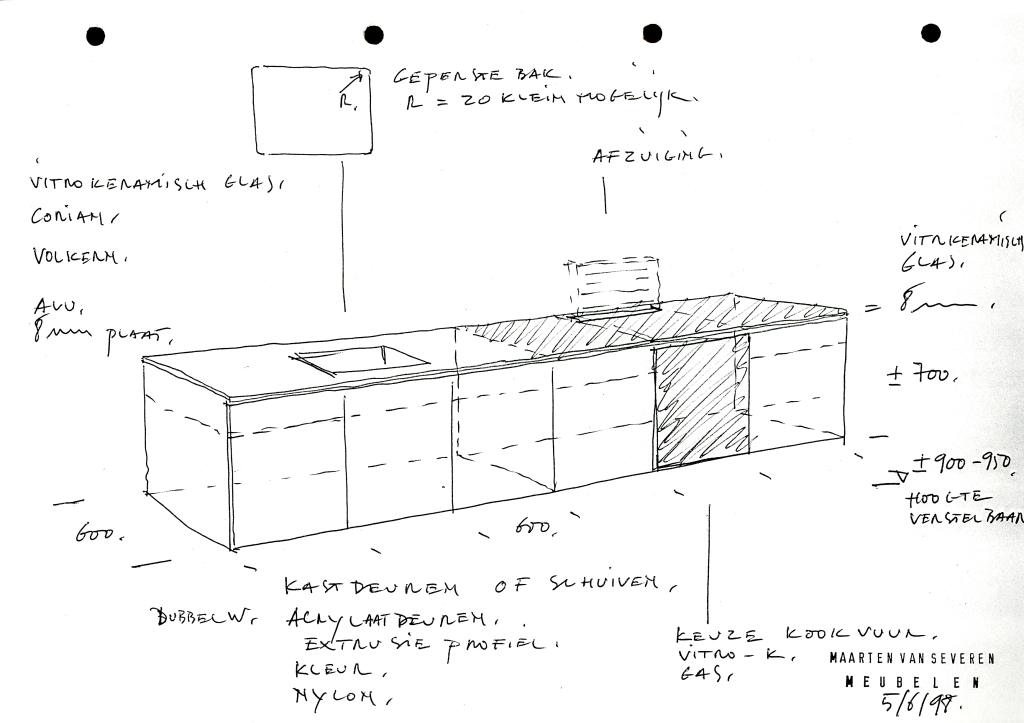 GEPERSTE BAK.
R.
R = 20 KLEIN MOGELIJK.
AFZUIGING.
VITROKERAMISCH GLAS,
CORIAN,
VOLKERN.
ALU.
8 mm PLAAT.
VITRKERAMISCH
GLAS.
= 8 mm.
± 700.
± 900-950.
HOOGTE
VERSTELBAAR
600.
600.
KASTDEUREN OF SCHUIVEN,
DUBBELW. ACRYLAATDEUREN.
EXTRUSIE PROFIEL.
KLEUR.
NYLON.
KEUZE KOOKVUUR.
VITRO-K.
GAS.
MAARTEN VAN SEVEREN
MEUBELEN